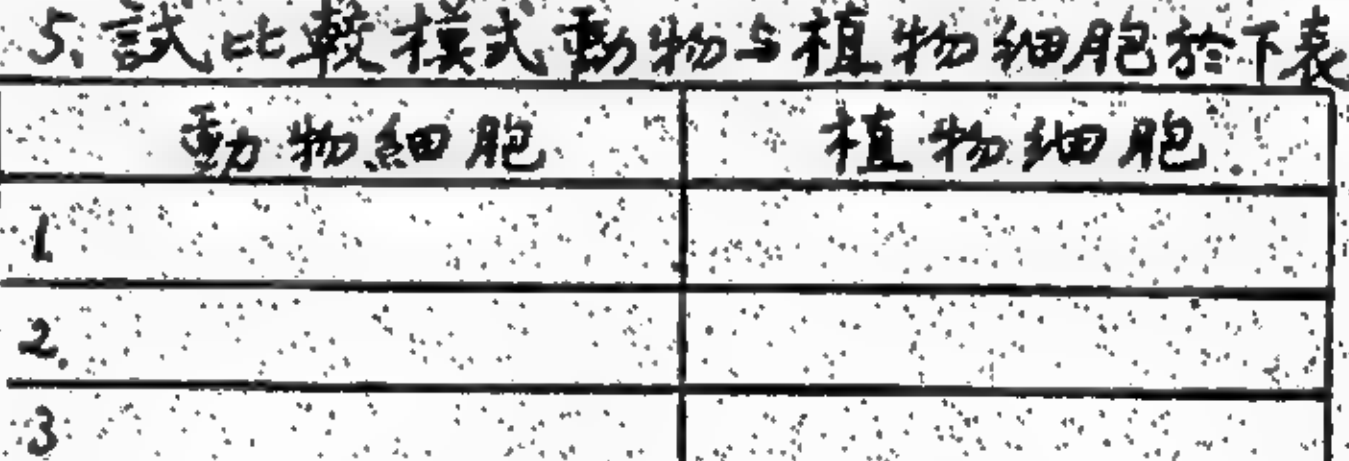 5. 試比較模式動物与植物細胞於下表
動物細胞 植物细胞
1.
2.
3